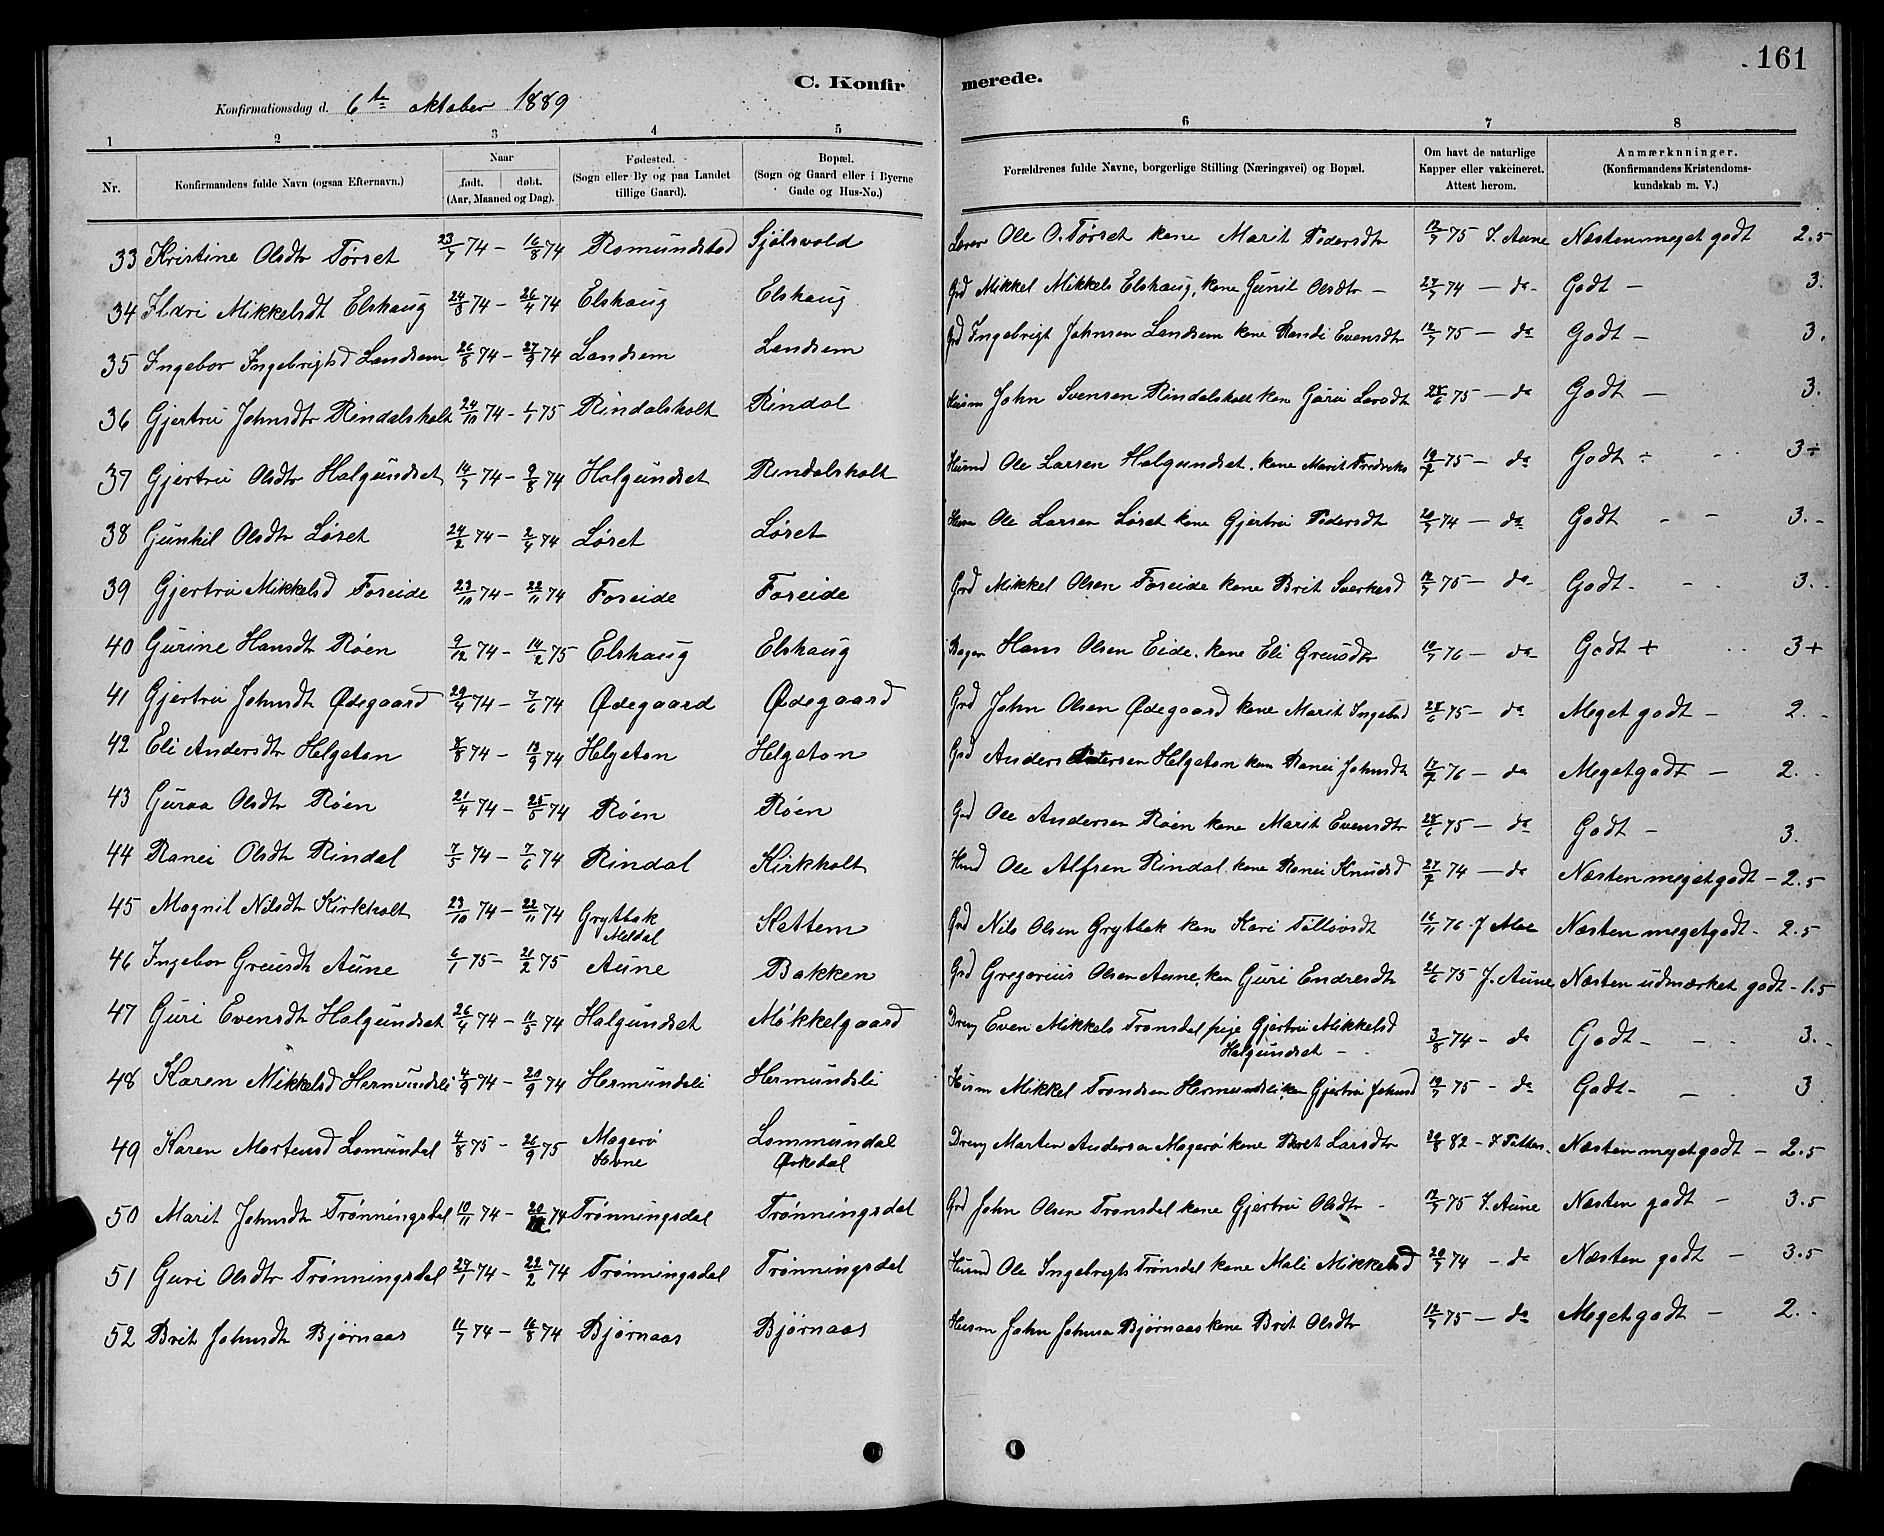 161
C. Konfirmerede.
Konfirmationsdag d. 6te oktober 1889
1 2 3 4 5 6 7 8
Nr. Konfirmandens fulde Navn (ogsaa Efternavn.) Naar født. døbt. (Aar, Maaned og Dag). Fødested. (Sogn eller By og paa Landet tillige Gaard). Bopæl. (Sogn og Gaard eller i Byerne Gade og Hus-No.) Forældrenes fulde Navne, borgerlige Stilling (Næringsvei) og Bopæl. Om havt de naturlige Kapper eller vakcineret. Attest herom. Anmærkninger. (Konfirmandens Kristendomskundskab m. V.)
33 Kristine Olsdtr Tørset 23/7 74 – 16/8 74 Romundstad Sjölsvold Lærer Ole O. Tørset kone Marit Pedersdtr 12/7 75 J. Aune Næsten meget godt 2.5
34 Ildri Mikkelsdt Elshaug 24/8 74 – 26/4 74 Elshaug Elshaug Grd Mikkel Mikkels Elshaug, kone Gunil Olsdtr – 27/7 74 – do Godt – 3.
35 Ingebor Ingebrigtsd Landsem 26/8 74 – 27/9 74 Landsem Landsem Grd Ingebrigt Johnsen Landsem kone Randi Evensdtr 12/7 75 – do Godt – 3.
36 Gjertru Johnsdtr Rindalsholt 24/10 74 – 1/1 75 Rindalsholt Rindal Husm John Svensen Rindalsholt kon Guru Larsdt 28/6 75 – do Godt – 3.
37 Gjertru Olsdtr Halgundset 14/7 74 – 9/8 74 Halgundset Rindalsholt Husmd Ole Larsen Halgundset. kone Marit Fredriks 19/7 75 – do Godt ÷ 3÷
38 Gunhil Olsdtr Løset 24/2 74 – 2/4 74 Løset Løset Husm Ole Larsen Løset kone Gjertru Pedersdtr 20/7 74 – do Godt – – 3. –
39 Gjertru Mikkelsd Foseide 23/10 74 – 22/11 74 Foseide Foseide Grd Mikkel Olsen Foseide kone Brit Sverkesd 12/7 75 – do Godt – – 3.
40 Gurine Hansdt Røen 9/12 74 – 14/2 75 Elshaug Elshaug Bager Hans Olsen Eide. kone Eli Greusdtr 10/7 76 – do Godt + 3+
41 Gjertru Johnsdt Ødegaard 29/4 74 – 7/6 74 Ødegaard Ødegaard Grd John Olsen Ødegaard kone Marit Ingebrd 28/6 75 – do Meget godt – 2. –
42 Eli Andersdtr Helgeton 8/8 74 – 13/9 74 Helgeton Helgeton Grd Anders Petersen Helgeton kon Ranei Johnsdt 17/7 76 – do Meget godt – 2.
43 Guroa Olsdtr Røen 21/4 74 – 25/5 74 Røen Røen Grd Ole Andersen Røen kone Marit Evensdtr 28/6 75 – do Godt – 3.
44 Ranei Olsdtr Rindal 7/5 74 – 7/6 74 Rindal Kirkholt Husmd Ole Alfsen Rindal. kone Ranei Knudsd 27/7 74 – do Næsten meget godt – 2.5
45 Magnil Nilsdt Kirkholt 23/10 74 – 22/11 74 Grytbak Meldal Kattem Grd Nils Olsen Grytbak kon Kari Tollovsdt 16/11 76 J Moe Næsten meget godt – 2.5
46 Ingebor Greusdt Aune 6/1 75 – 21/2 75 Aune Bakken Grd Gregorius Olsen Aune, kon Guri Endresdt 21/6 75 J. Aune Næsten udmærket godt – 1.5
47 Guri Evensdt Halgundset 26/4 74 – 11/5 74 Halgundset Møkkelgaard Dreng Even Mikkels Tronsdal pige Gjertru Mikkelsd Halgundset – 3/8 74 – do Godt – – 3. –
48 Karen Mikkelsd Hermundsli 4/9 74 – 20/9 74 Hermundsli Hermundsli Husm Mikkel Trondsen Hermundsli kon Gjertru Johnsd 19/7 75 – do Godt – – 3
49 Karen Mortensd Lomundal 4/8 75 – 26/9 75 Magerö Hevne Lommundal Orkedal Dreng Morten Andersen Magerö kone Beret Larsdtr 20/8 82 – Næsten meget godt – 2.5
50 Marit Johnsdt Trønningsdal 10/11 74 – 20/ 74 Trønningsdal Trønningsdal Grd John Olsen Tronsdal kone Gjertru Olsdtr – 12/7 75 J. Aune Næsten godt – 3.5
51 Guri Olsdtr Trønningsdal 27/1 74 – 22/2 74 Trønningsdal Trønningsdal Husmd Ole Ingebrigts Trønsdal kone Mali Mikkelsd 20/7 74 – do Næsten godt – 3.5
52 Brit Johnsdt Bjørnaas 11/7 74 – 16/8 74 Bjørnaas Bjørnaas Husm John Johnsen Bjørnaas kone Brit Olsdtr 12/7 75 – do Meget godt – 2.